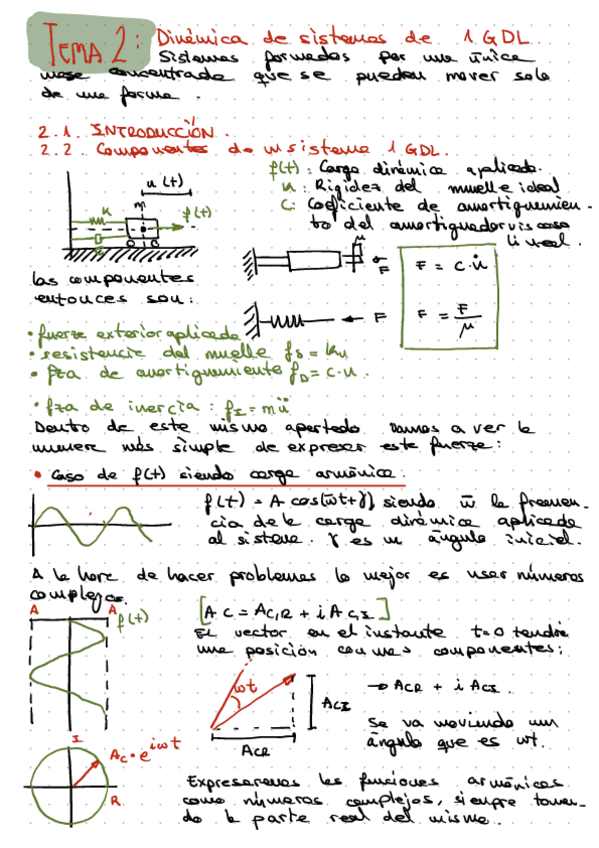 TEMA 2: Dinámica de sistemas de 1 GDL.
Sistemas formados por una única
masa concentrada que se pueden mover solo
de una forma.
2.1. INTRODUCCIÓN.
2.2. Componentes de un sistema 1 GDL.
u(t)
m
k
c
f(t)
f(t): Carga dinámica aplicada.
k: Rigidez del muelle ideal
C: Coeficiente de amortiguamien-
to del amortiguador viscoso
lineal.
F
F = c·u̇
F
F = F/μ
las componentes
entonces son:
• fuerza exterior aplicada
• resistencia del muelle fs = ku
• fza de amortiguamiento fD = c·u.
• fza de inercia: fI = mü
Dentro de este mismo apartado vamos a ver la
manera más simple de expresar esta fuerza:
• Caso de f(t) siendo carga armónica.
f(t) = A cos(w̄t+γ), siendo w̄ la frecuen-
cia de la carga dinámica aplicada
al sistema. γ es un ángulo inicial.
A la hora de hacer problemas lo mejor es usar números
complejos.
A A
f(t)
[AC = AC,R + i AC,I]
El vector en el instante t=0 tendrá
una posición con unas componentes:
wt
ACI
ACR
→ ACR + i ACI.
Se va moviendo un
ángulo que es wt.
I
AC·e^iwt
R
Expresaremos las funciones armónicas
como números complejos, siempre toman-
do la parte real del mismo.